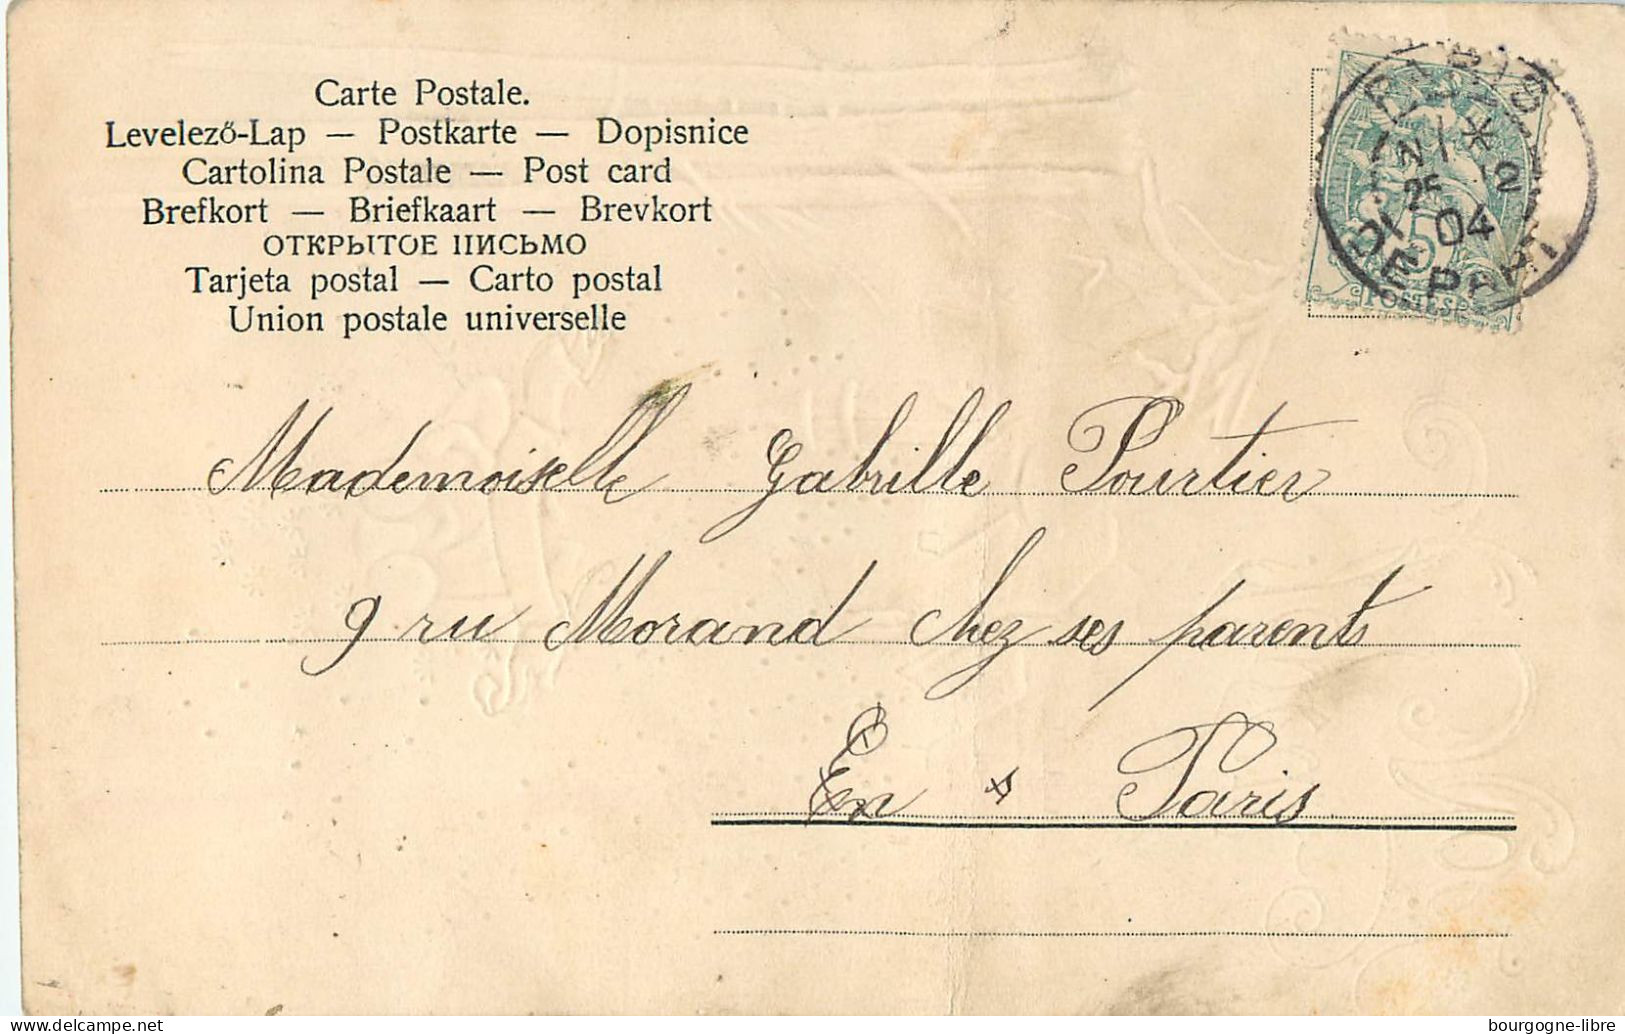 Carte Postale.
Levelező-Lap — Postkarte — Dopisnice
Cartolina Postale — Post card
Brefkort — Briefkaart — Brevkort
ОТКРЫТОЕ ПИСЬМО
Tarjeta postal — Carto postal
Union postale universelle
PARIS
25
04
DEPART
5
POSTES
Mademoiselle Gabrille Pourtier
9 ru Morand Chez ses parents
En Paris
bourgogne-libre